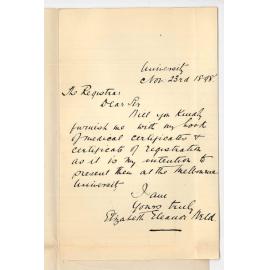 University
Nov. 23rd 1898
The Registrar
Dear Sir
Will you kindly
furnish me with my book
of medical certificates &
certificate of registration
as it is my intention to
present them at the Melbourne
University
I am
Yours truly
Elizabeth Eleanor